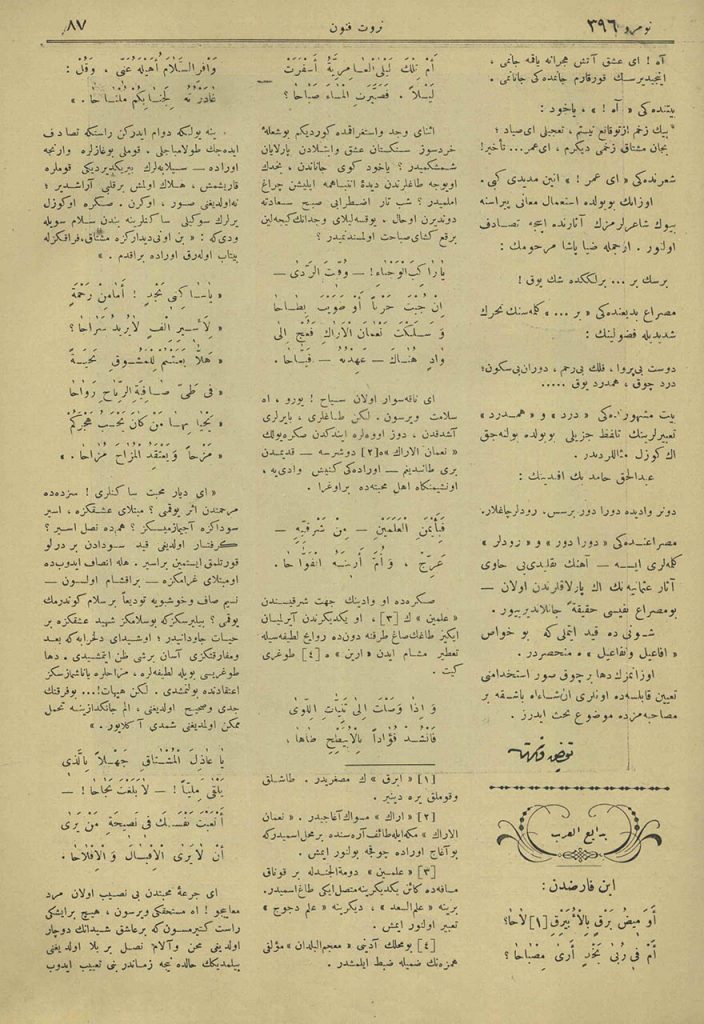 نومرو ٣٩٦
ثروت فنون
٨٧
آه ! ای عشق آتش هجرانه یاقه جانمی ،
اینجیدیرسك قورقارم جانده‌كی جانانمی .
بیتنده‌كی « آه ! » ، یاخود :
بیك زخم ازتوقانع نیستم ، تعجیلی ای‌صیاد ؛
بجان مشتاق زخمی دیكرم ، ای‌عمر... تأخیر!
شعرنده‌كی « ای عمر ! » انین مدیدی كبی .
اوزانك بویولده استعمال معانی پیراسنه
بیوك شاعرلرمزك آثارنده ایجه تصادف
اولنور . ازجمله ضیا پاشا مرحومك :
برسك بر ... برلككده شك یوق !
مصراع بدیعنده‌كی « بر ... » كله‌سنك تحرك
شدیدیله فضولینك :
دوست بی‌پروا ، فلك بی‌رحم ، دوران بی‌سكون؛
درد چوق ، همدرد یوق .....
بیت مشهورنده‌كی « درد » و « همدرد »
تعبیرلرینك تلفظ جزیلی بویولده بولنه‌جق
اك كوزل مثاللردندر .
عبدالحق حامد بك افندینك :
دونر وادیده دورا دور برسس. رودلرچاغلار.
مصراعنده‌كی « دورا دور » و « رودلر »
كله‌لری ایسه — آهنك تقلیدی‌یی حاوی
آثار عثمانیه‌نك اك پارلاقلرندن اولان —
بومصراع نفیسی حقیقةً جانلاندیریور .
شونی‌ده قید ایتملی كه بو خواص
« افاعیل وتفاعیل » ه منحصردر .
اوزانمزك دها برچوق صور استخدامنی
تعیین قابلسه‌ده اونلری ان‌شاءالله باشقه بر
مصاحبه‌مزده موضوع بحث ایدرز .
توفیق فكرت
بدایع العرب
ابن فارضدن :
أَوَ مِیضُ بَرْقٍ بِالْأُبَیْرِقِ[١] لاحَا؟
أَمْ فِی رُبَی نَجْدٍ أَرَیٰ مِصْبَاحَا ؟
أَمْ تِلْكَ لَیْلَی الْعَامِرِیَّةُ أَسْفَرَتْ
لَیْلاً . فَصَیَّرَتِ الْمَسَاءَ صَبَاحَا ؟
اثنای وجد واستغراقمده كوردیكم بوشعلهٔ
خردسوز سنكستان عشق وابتلادن پارلایان
شمشكمیدر ؟ یاخود كوی جاناندن ، نجدك
اویوجه طاغلرندن دیدهٔ انتباهمه ایلیشن چراغ
املمیدر ؟ شب تار اضطرابی صبح سعادته
دوندیرن اوحال . یوقسه‌لیلای وجدانك‌كیجه‌لین
برقع كشای‌صباحت اولمسندنمیدر ؟
یَا رَاكِبَ الْوَجْنَاءِ ! — وُقِیتَ الرَّدَی —
اِنْ جُبْتَ حَزْناً أَوْ طَوَیْتَ بِطَاحَا
وَ سَلَكْتَ نَعْمَانَ الْاَرَاكِ فَعُجْ اِلَی
وَادٍ هُنَاكَ — عَهِدْتُهُ — فَیَّاحَا .
ای ناقه‌سوار اولان سیاح ! یورو ، اه
سلامت ویرسون . لكن طاغلری ، بایرلری
آشدقدن ، دوز اووه‌لره ایندكدن صكره‌یولك
« نعمان الاراك »ه[٢] دوشرسه — قدیمدن
بری طانیدیغم — اوراده‌كی كنیش وادی‌یه ،
اونشیمنكاه اهل محبته‌ده براوغرا .
فَبِأَیْمَنِ الْعَلَمَیْنِ — مِنْ شَرْقِیِّهِ —
عَرِّجْ ، وَ أُمَّ أَرِینَهُ الْفَوَّاحَا .
صكره‌ده او وادینك جهت شرقیسندن
« علمین » ك [٣] ، او یكدیكرندن آیریلان
ایكیز طاغك‌صاغ طرفنه دون‌ده روایح لطیفه‌سیله
تعطیر مشام ایدن « ارین » ه [٤] طوغری
كیت .
وَ اِذَا وَصَلْتَ اِلَی ثَنِیَّاتِ اللِّوَیٰ
فَانْشُدْ فُؤَاداً بِالْأُبَیْطِحِ طَاحَا ،
[١] « ابرق » ك مصغریدر . طاشلق
وقوملق یره دینیر .
[٢] « اراك » مسواك آغاجیدر . « نعمان
الاراك » مكه‌ایله‌طائف‌آره‌سنده برمحل‌اسمیدركه
بوآغاج اوراده چوقجه بولنور ایمش .
[٣] « علمین » دومة‌الجندله بر قوناق
مسافه‌ده كائن یكدیكرینه‌متصل‌ایكی طاغ‌اسمیدر.
برینه « علم‌السعد » ، دیكرینه « علم دجوج »
تعبیر اولنور ایمش .
[٤] بومحلك آدینی « معجم‌البلدان » مؤلفی
همزه‌نك ضمیله ضبط ایلمشدر .
وَاقْرِ السَّلَامَ أُهَیْلَهُ عَنِّی . وَقُلْ :
غَادَرْتُهُ لِجَنَابِكُمْ مُلْتَاحَا . »
. ینه یولكه دوام ایدركن راستكه تصادف
ایده‌جك طولامباجلی . قوملی بوغازلره وارنجه
اوراده — سیلابه‌لرك بیریكدیردیكی قوملره
قاریشمش ، هلاك اولمش برقلبی آراشدیر ؛
نه‌اولدیغنی صور ، اوكرن . صكره اوكوزل
یرلرك سوكیلی ساكنلرینه بندن سلام سویله
ودی‌كه : « بن اونی‌دیداركزه مشتاق،فراقكزله
بیتاب اوله‌رق اوراده براقدم . »
« یَا سَاكِنِی نَجْدٍ ! أَمَا مِنْ رَحْمَةٍ
« لِأَسِیرِ اِلْفٍ لَا یُرِیدُ سَرَاحَا ؟
« هَلَّا بَعَثْتُمْ لِلْمَشُوقِ تَحِیَّةً
« فِی طَیِّ صَافِیَةِ الرِّیَاحِ رَوَاحَا ؟
« یَحْیَا بِهَا مَنْ كَانَ یَحْسَبُ هَجْرَكُمْ
« مَزْحاً وَ یَعْتَقِدُ الْمُزَاحَ مُزَاحَا ! . »
« ای دیار محبت ساكنلری ! سزده‌ده
مرحمتدن اثر یوقمی ؟ مبتلای عشقكزه ، اسیر
سوداكزه آجیمازمیسكز ؟ هم‌ده نصل اسیر ؟
كرفتار اولدیغی قید سودادن بر درلو
قورتلمق ایستمین براسیر . هله انصاف ایدوب‌ده
اومبتلای غرامكزه — برآقشام اولسون —
نسیم صاف وخوشبویه تودیعاً برسلام كوندرمك
یوقمی ؟ بیلیرسكزكه بوسلامكز شهید عشقكزه بر
حیات جاودانیدر ؛ اوشیدای دلخرابه‌كه بعد
ومفارقتكزی آسان برشی ظن ایتمشیدی . دها
طوغریسی بویله لطیفه‌لره ، مزاحلره یاناشمازسكز
اعتقادنده بولنمشدی . لكن هیهات!... بوفرقتك
جدی وصحیح اولدیغنی ، الم جانكدازینه تحمل
ممكن اولمدیغنی شمدی آكلایور . »
یَا عَاذِلَ الْمُشْتَاقِ جَهْلاً بِالَّذِی
یَلْقَی مَلِیّاً ! — لَا بَلَغْتَ نَجَاحَا ! —
أَتْعَبْتَ نَفْسَكَ فِی نَصِیحَةِ مَنْ یَرَیٰ
أَنْ لَا یَرَی الْاِقْبَالَ وَ الْاِفْلَاحَا .
ای جرعهٔ محبتدن بی نصیب اولان مرد
معایبجو ! اه مستحقكی ویرسون ، هیچ برایشكی
راست كتیرمسون كه برعاشق شیدانك دوچار
اولدیغی محن وآلام نصل بر بلا اولدیغنی
بیلمدیكك حالده نیجه زماندر بنی تعییب ایدوب